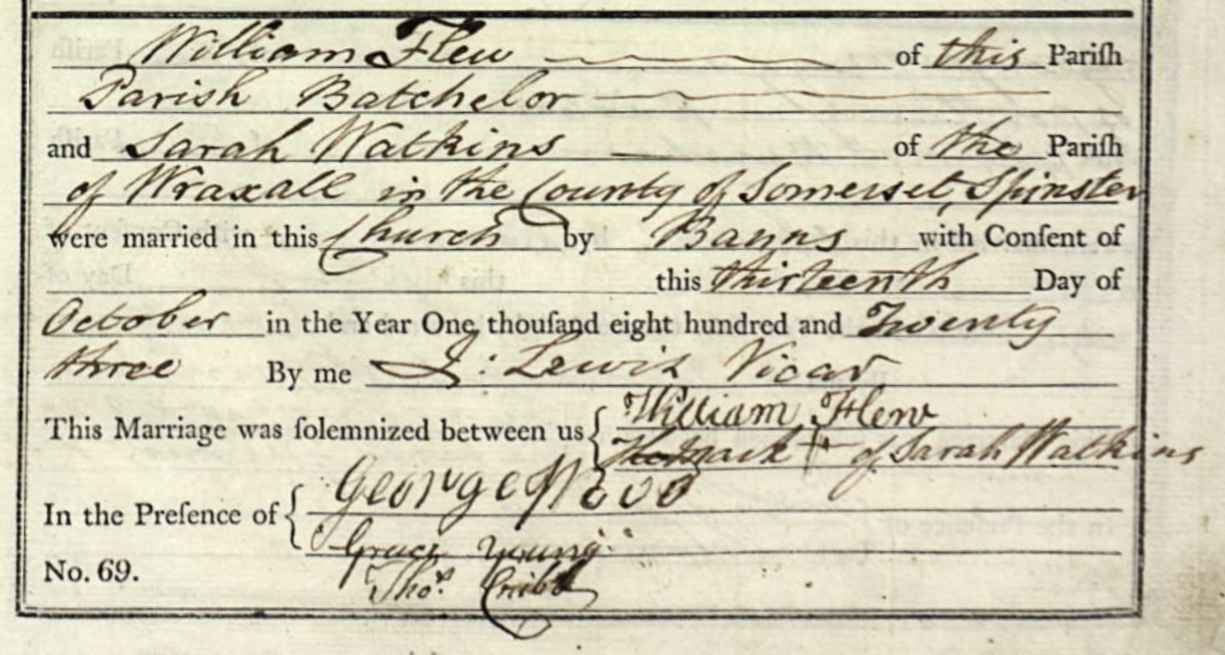 William Flew of this Pariſh
Parish Batchelor
and Sarah Watkins of the Pariſh
of Wraxall in the County of Somerset, Spinster
were married in this Church by Banns with Conſent of
this thirteenth Day of
October in the Year One thouſand eight hundred and Twenty
three By me J: Lewis Vicar
This Marriage was ſolemnized between us William Flew
mark + of Sarah Watkins
In the Preſence of George
Grace Young
No. 69. Thos. Cribb